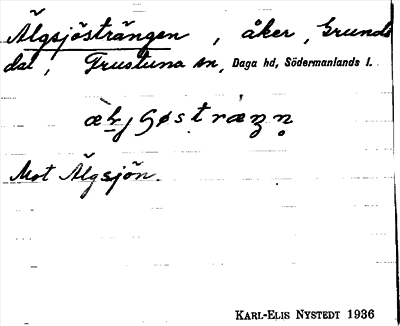 Älgsjösträngen , åker , Grunds
dal , Frustuna sn, Daga hd, Södermanlands l.
Mot Älgsjön.
KARL-ELIS NYSTEDT 1936